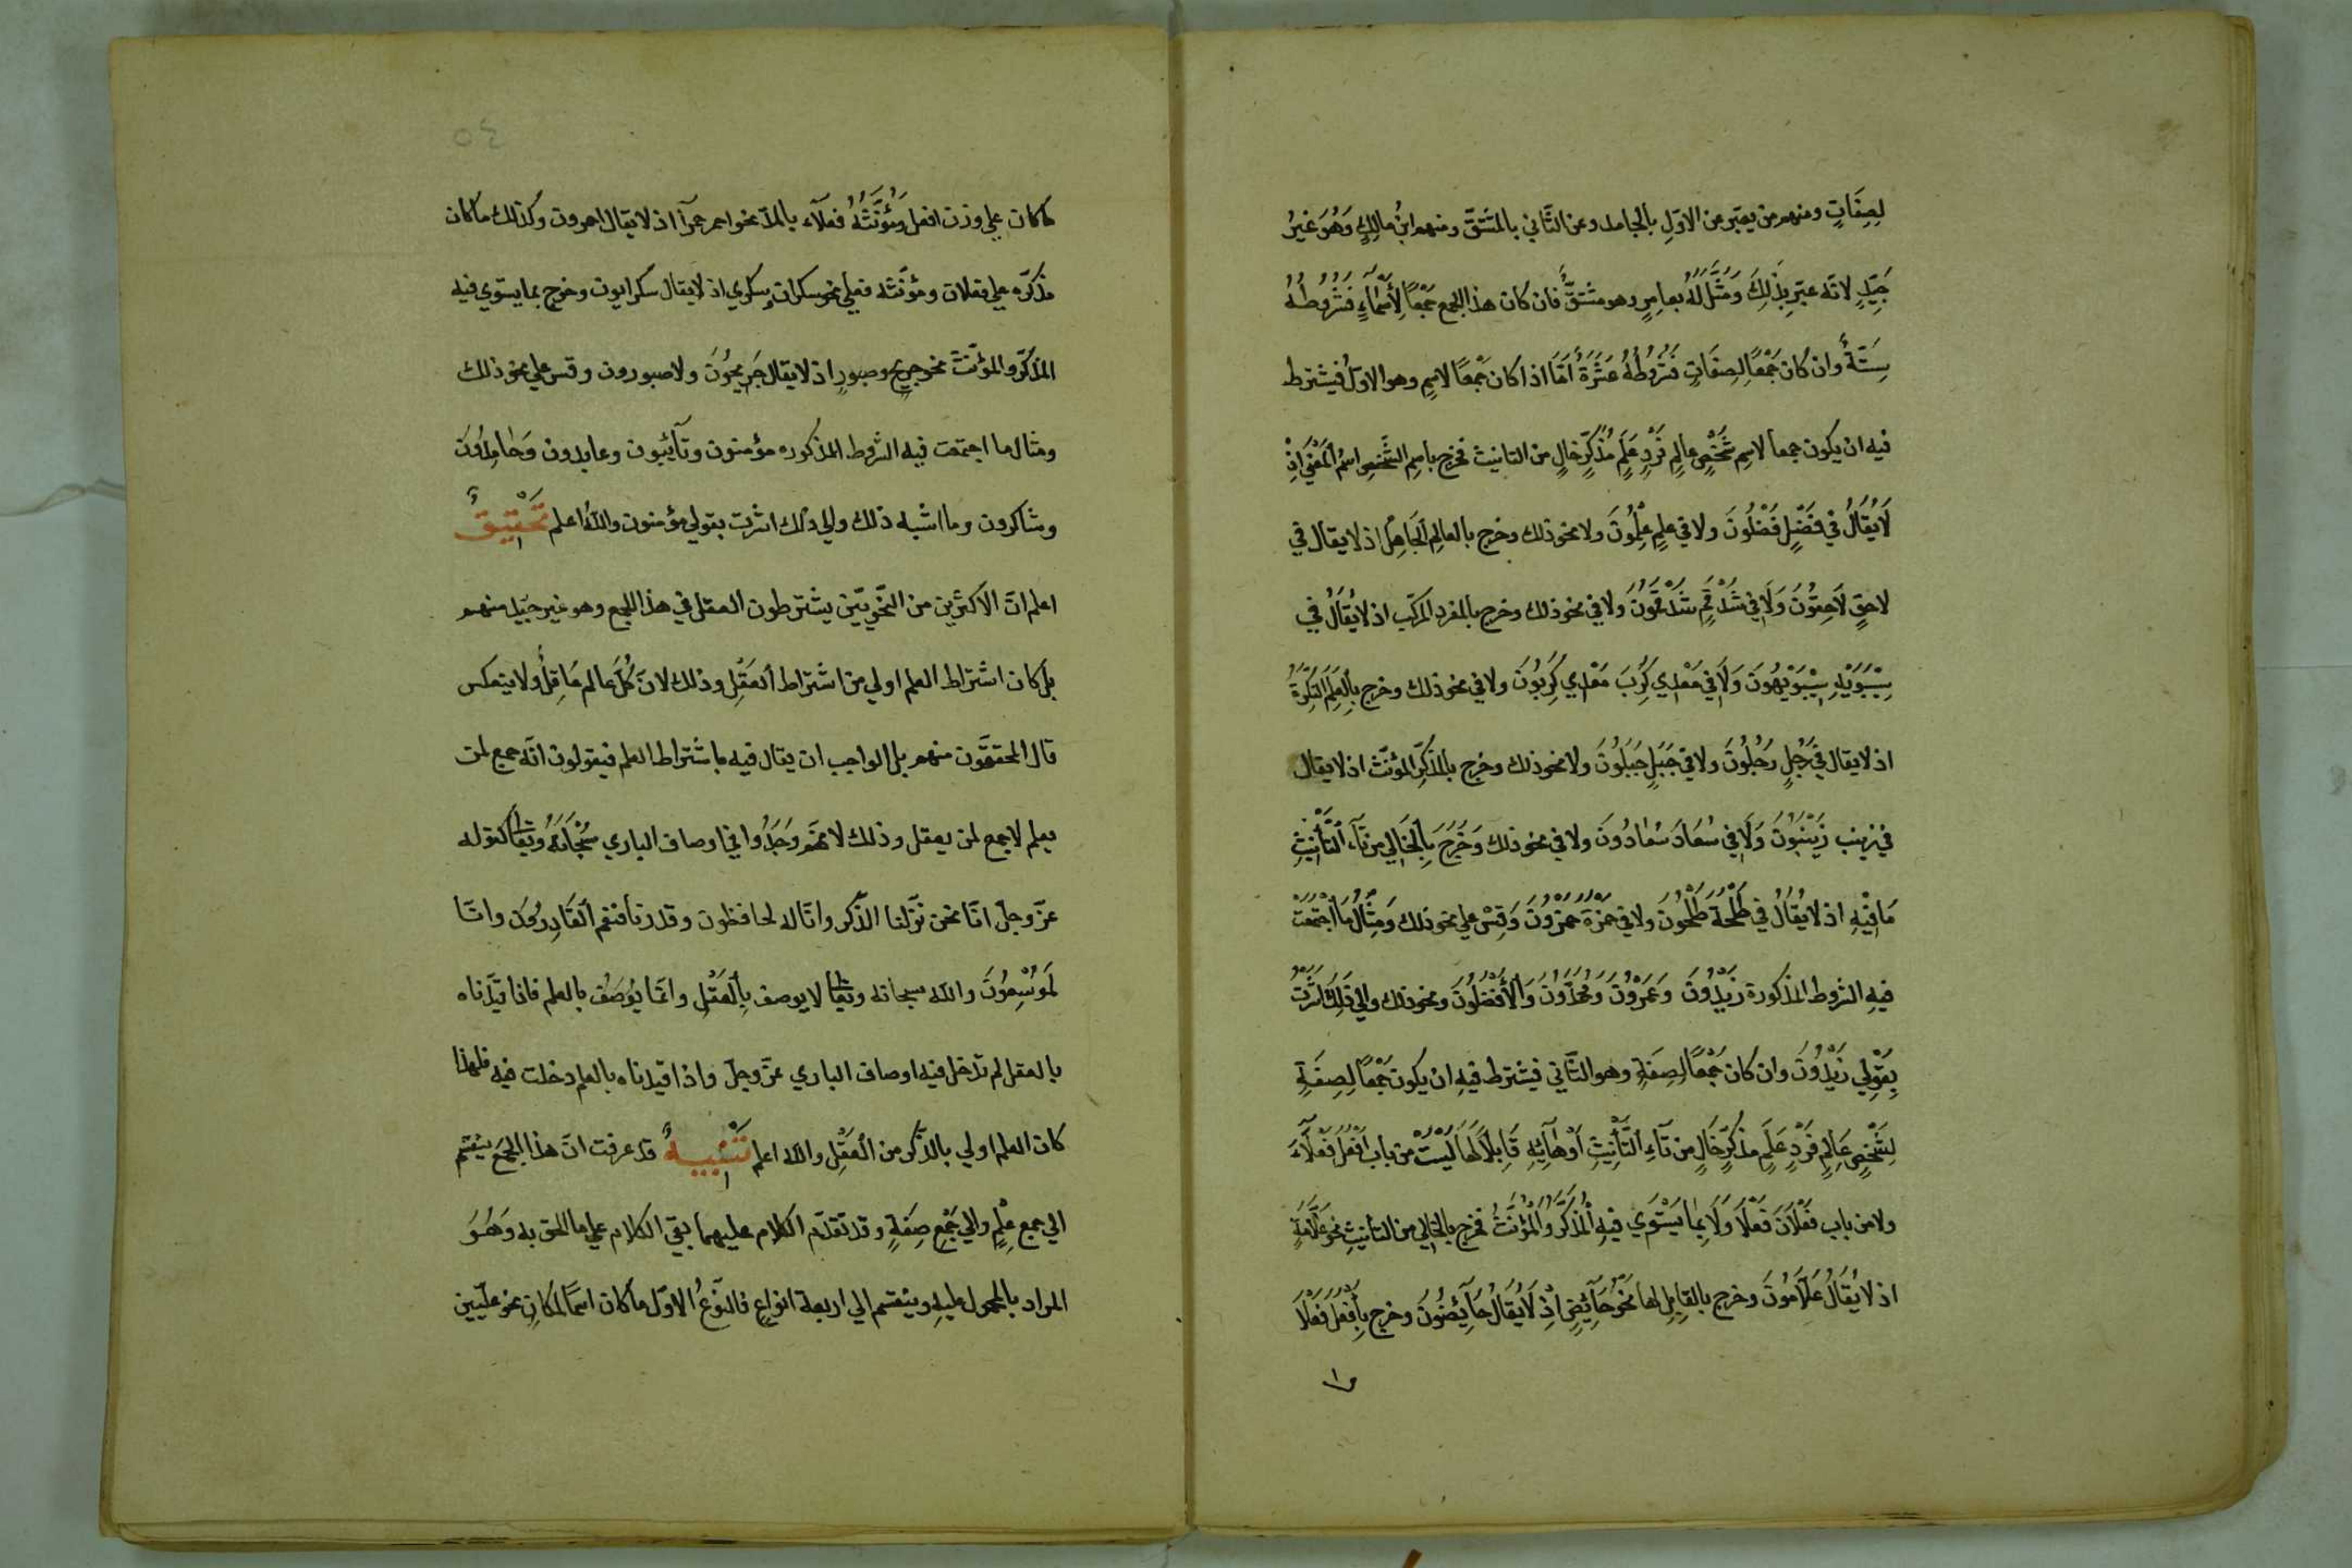 لِصِفَاتٍ ومنهم من يعبّر عن الاوّلِ بالجامد وعن الثّاني بالمشتقّ ومنهم ابنُ مالِكٍ وَهُوَ غَيرُ
جَيِّدٍ لانّه عبّر بِذَلِكَ وَمَثَّلَ لَهُ بعامِرٍ وهو مشتقٌّ فان كان هذا الجمع جَمْعًا لِأَسْمَآءٍ فَشُرُوطُهُ
سِتَّةٌ وان كان جَمْعًا لِصِفَاتٍ فَشُرُوطُهُ عَشَرَةٌ أمّا اذا كان جَمْعًا لاسِمٍ وهو الاوّلُ فيشترط
فيه ان يكون جمعا لاسِمِ شَخْصٍ عالِمٍ فَرْدٍ عَلَمٍ مُذَكَّرٍ خَالٍ من التانيث فخرج باسِمِ الشَّخْصِ اسمُ المَعْنَى اِذْ
لَايُقَالُ فِي فَضْلٍ فَضْلُونَ ولا في عِلمٍ عِلْمُونَ ولا نحو ذلك وخرج بالعالِمِ الجَاهِلُ اذ لا يقال في
لاحِقٍ لَاحِقُونَ وَلَا فِي شَدْقَمٍ شَدْقَمُونَ ولا في نحو ذلك وخرج بالمفرد المركّب اذ لا يُقَالُ في
سِيْبَوَيْهِ سِيْبَوَيْهُونَ وَلَا فِي مَعْدِي كَرِبَ مَعْدِي كَرِبُونَ ولا في نحو ذلك وخرج بِالعَلَمِ النَّكِرَةُ
اذ لا يقال في رَجُلٍ رَجُلُونَ ولا في جَبَلٍ جَبَلُونَ ولا نحو ذلك وخرج بالمذكَّرِ المؤنّث اذ لا يقال
في زينب زَيْنَبُونَ وَلَا فِي سُعَادَ سُعَادُونَ ولا في نحو ذلك وَخَرَجَ بِالخَالِي من تَآءِ التَّأْنِيْثِ
مَا فِيْهِ اذ لا يُقَالُ فِي طَلْحَةَ طَلْحُونَ ولا في حَمْزَةَ حَمْزُونَ وَقِسْ علي نحو ذلك وَمِثَالُ مَا اجْتَمَعَتْ
فيهِ الشروط المذكورة زَيْدُونَ وَعَمْرُوْنَ وَمُحَمَّدُوْنَ وَالأَفْضَلُونَ ونحو ذلك والي ذَلِكَ اَشَرْتُ
بِقَوْلِي زَيْدُوْنَ وان كان جَمْعًا لِصِفَةٍ وهو الثّاني فيشترط فيهِ ان يكون جَمْعًا لِصِفَةٍ
لِشَخْصٍ عَالِمٍ فَرْدٍ عَلَمٍ مذكّرٍ خَالٍ من تَآءِ التَّأْنِيْثِ أَوْ هَآئِهِ قَابِلًا لَهَا لَيْسَتْ من باب اَفْعَلَ فَعْلَآءَ
ولا من باب فَعْلَانَ فَعْلَا وَلَا بِمَا يَسْتَوِي فيهِ المُذَكَّرُ وَالمُؤَنَّثُ فخرج بالخالي من التأنيث نحو عَلَّامَةٍ
اذ لا يُقَالُ عَلَّامُونَ وخرج بالقابِلِ لها نَحْوُ حَآئِضٍ اِذْ لَا يُقَالُ حَآئِضُونَ وخرج بِأَفْعَلَ فَعْلَا
ما
٥٤
ما كان علي وزن افعل وَمُؤَنَّثُهُ فعلآء بالمدّ نحو احمر حمرآ اذ لا يقال احمرون وكذلك ما كان
مذكّره علي فعلان ومؤنّثه فعلي نحو سكران وسكري اذ لا يقال سكرانون وخرج بما يستوي فيه
المذكّر والمؤنّث نحو جريحٍ وصبورٍ اذ لا يقال جَرِيحُونَ ولا صبورون وقس علي نحو ذلك
ومثال ما اجتمعت فيه الشروط المذكوره مؤمنون وتآئبون وعابدون وَحَامِدُونَ
وشاكرون وما اشبه ذلك والي ذلك اشرت بقولي مؤمنون والله اعلم تَحْقِيْقٌ
اعلم انّ الاكثرين من النّحويّين يشترطون العقل في هذا الجمع وهو غير جيّد منهم
بل كان اشتراط العلم اولي من اشتراط العَقْلِ وذلك لانّ كُلَّ عالم عَاقِلٌ ولا ينعكس
قال المحققّون منهم بل الواجب ان يقال فيه باشتراط العلم فيقولون انّه جمع لمن
يعلم لا جمع لمن يعقل وذلك لانهم وَجَدُوا في اوصاف الباري سُبْحَانَهُ وتعالى كقوله
عزّ وجلّ انّا نحن نزّلنا الذّكر وانّا له لحافظون وقدرنا فنعم القَادِرُونَ وانّا
لَمُوْسِعُوْنَ والله سبحانه وتعالى لا يوصف بِالعَقْلِ وانّما يُوصَفُ بالعلم فاذا قيّدناه
بالعقل لم تدخل فيه اوصاف الباري عزّ وجلّ واذا قيدناه بالعلم دخلت فيه فلهذا
كان العلم اولي بالذّكر من العَقْلِ والله اعلم تَنْبِيْهٌ قد عرفت انّ هذا الجَمْعَ ينقسم
الي جمع عَلَمٍ والي جَمْعِ صِفَةٍ وقد تقدّم الكلام عليهما بقي الكلام علي ما الحق به وَهُوَ
المراد بالمحمول عليهِ وينقسم الي اربعة انواعٍ فالنّوعُ الاوّل ما كان اسمًا لمكان نحو علّيين